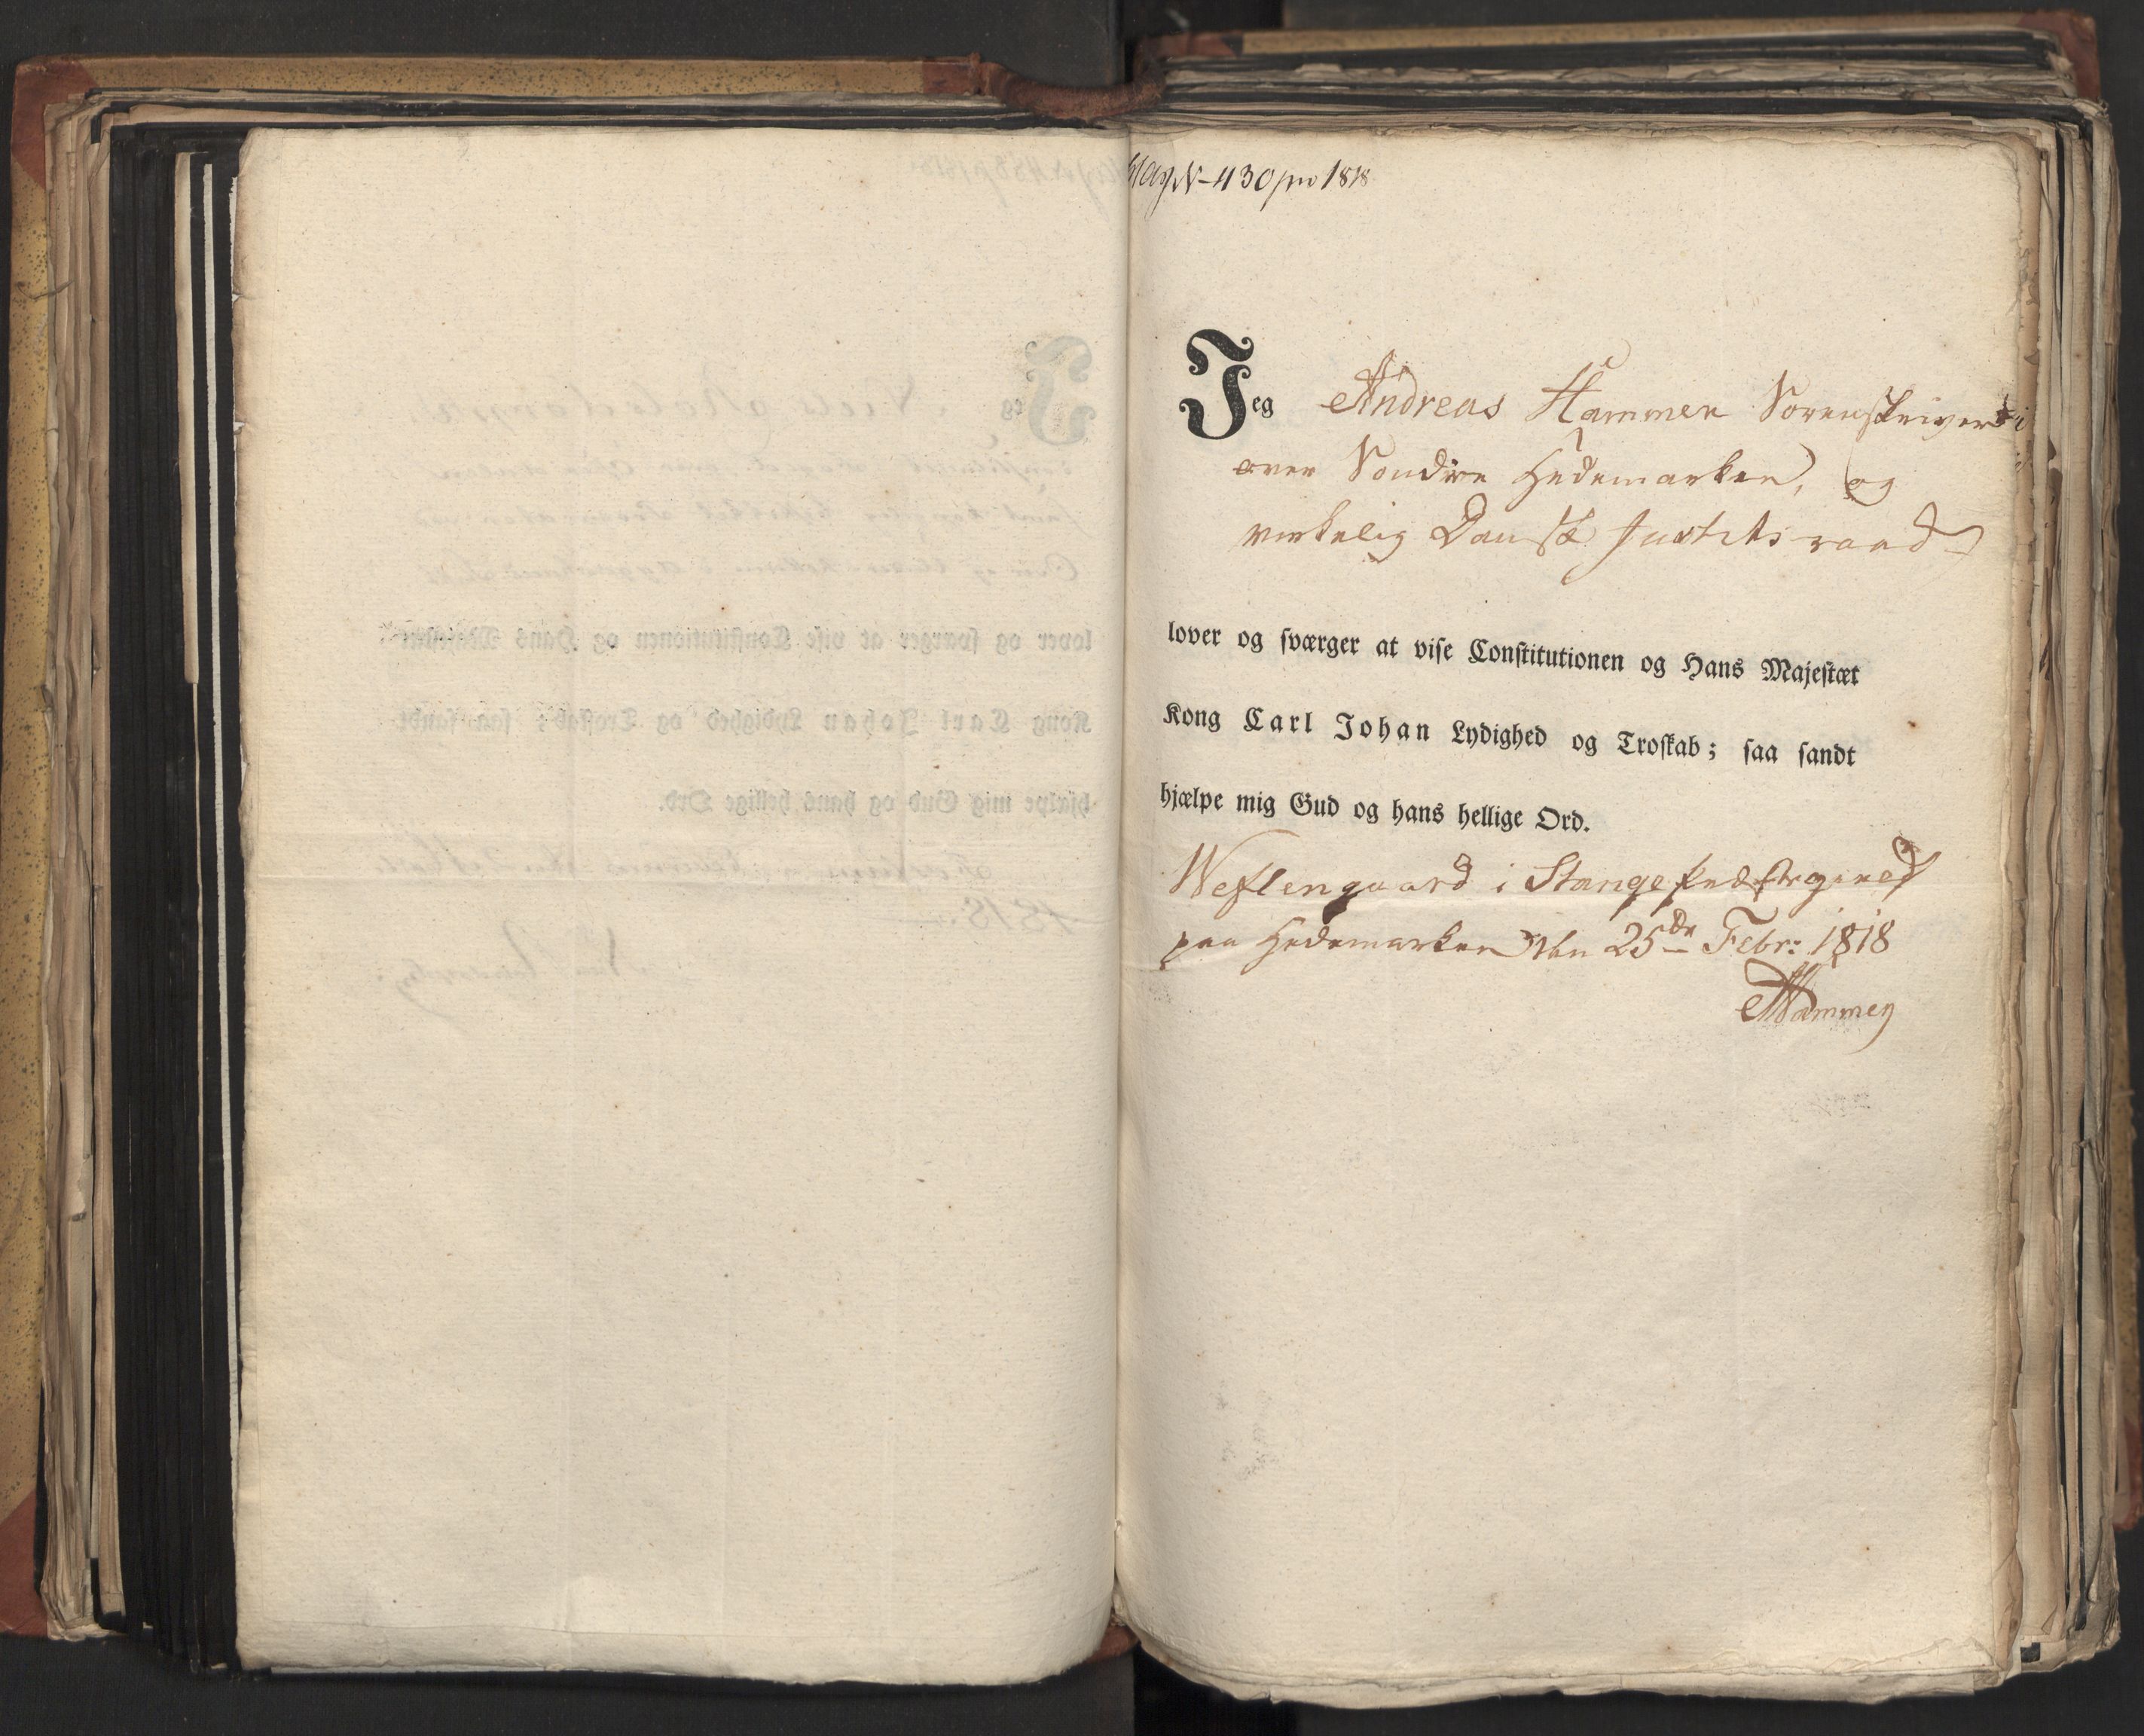 No 430 pro 1818
Jeg Andreas Hammer Sorenskriver
over Søndre Hedemarken, og
virkelig Dansk Justitsraad
lover og sværger at vise Constitutionen og Hans Majestæt
Kong Carl Johan Lydighed og Troskab; saa sandt
hjælpe mig Gud og hans hellige Ord.
i Stange
paa Hedemarken den 25de Febr: 1818
AHammer